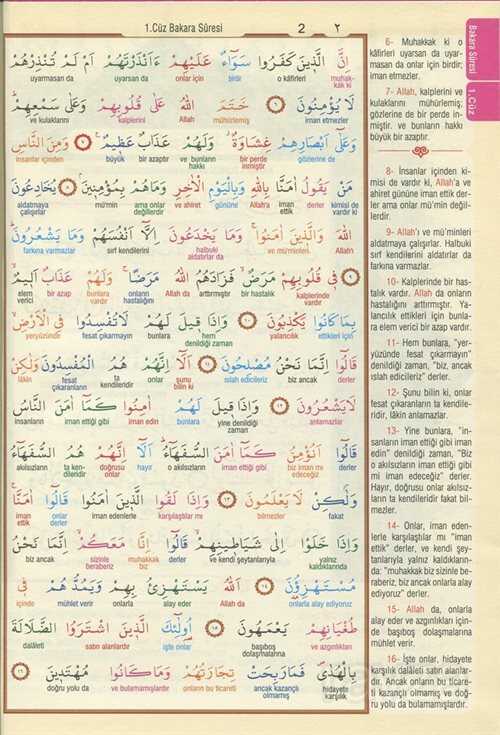 1.Cüz Bakara Sûresi 2 ٢
اِنَّ الَّذٖينَ كَفَرُوا سَوَٓاءٌ عَلَيْهِمْ ءَاَنْذَرْتَهُمْ اَمْ لَمْ تُنْذِرْهُمْ
uyarmasan da uyarsan da onlar için birdir o kâfirleri muhakkak ki
لَا يُؤْمِنُونَ ٦ خَتَمَ اللّٰهُ عَلٰى قُلُوبِهِمْ وَعَلٰى سَمْعِهِمْ
ve kulaklarını kalplerini Allah mühürlemiş iman etmezler
وَعَلٰٓى اَبْصَارِهِمْ غِشَاوَةٌ وَلَهُمْ عَذَابٌ عَظٖيمٌ ٧ وَمِنَ النَّاسِ
insanlar içinden büyük bir azaptır ve bunların hakkı bir perde inmiştir gözlerine de
مَنْ يَقُولُ اٰمَنَّا بِاللّٰهِ وَبِالْيَوْمِ الْاٰخِرِ وَمَاهُمْ بِمُؤْمِنٖينَ ٨ يُخَادِعُونَ
aldatmaya çalışırlar mü'min ama onlar değillerdir ve ahiret gününe Allah'a iman ettik derler kimisi de vardır ki
اللّٰهَ وَالَّذٖينَ اٰمَنُوا وَمَا يَخْدَعُونَ اِلَّٓا اَنْفُسَهُمْ وَمَا يَشْعُرُونَ
farkına varmazlar sırf kendilerini halbuki aldatırlar da ve mü'minleri Allah'ı
٩ فٖى قُلُوبِهِمْ مَرَضٌ فَزَادَهُمُ اللّٰهُ مَرَضًا وَلَهُمْ عَذَابٌ اَلٖيمٌ
elem verici bir azap bunlara vardır onların hastalığını Allah da arttırmıştır bir hastalık kalplerinde vardır
بِمَا كَانُوا يَكْذِبُونَ ١٠ وَاِذَا قٖيلَ لَهُمْ لَا تُفْسِدُوا فِى الْاَرْضِ
yeryüzünde fesat çıkarmayın bunlara hem denildiği zaman yalancılık ettikleri için
قَالُٓوا اِنَّمَا نَحْنُ مُصْلِحُونَ ١١ اَلَٓا اِنَّهُمْ هُمُ الْمُفْسِدُونَ وَلٰكِنْ
lâkin fesat çıkaranların ta kendileridir onlar şunu bilin ki ıslah edicileriz biz ancak derler
لَا يَشْعُرُونَ ١٢ وَاِذَا قٖيلَ لَهُمْ اٰمِنُوا كَمَٓا اٰمَنَ النَّاسُ
insanların iman ettiği gibi iman edin bunlara yine denildiği zaman anlamazlar
قَالُٓوا اَنُؤْمِنُ كَمَٓا اٰمَنَ السُّفَهَٓاءُ اَلَٓا اِنَّهُمْ هُمُ السُّفَهَٓاءُ
akılsızların ta kendileridir doğrusu onlar hayır o akılsızların iman ettiği gibi biz iman mı edeceğiz derler
وَلٰكِنْ لَا يَعْلَمُونَ ١٣ وَاِذَا لَقُوا الَّذٖينَ اٰمَنُوا قَالُٓوا اٰمَنَّا
iman ettik derler iman edenlerle karşılaştılar mı bilmezler fakat
وَاِذَا خَلَوْا اِلٰى شَيَاطٖينِهِمْ قَالُٓوا اِنَّا مَعَكُمْ اِنَّمَا نَحْنُ
biz ancak sizinle beraberiz muhakkak biz derler ve kendi şeytanlarıyla yalnız kaldıklarında
مُسْتَهْزِؤُنَ ١٤ اَللّٰهُ يَسْتَهْزِئُ بِهِمْ وَيَمُدُّهُمْ فٖى
içinde mühlet verir onlarla alay eder Allah da onlarla alay ediyoruz
طُغْيَانِهِمْ يَعْمَهُونَ ١٥ اُولٰٓئِكَ الَّذٖينَ اشْتَرَوُا الضَّلَالَةَ
dalâleti satın alanlardır işte onlar başıboş dolaşmalarına ve azgınlıkları
بِالْهُدٰى فَمَا رَبِحَتْ تِجَارَتُهُمْ وَمَا كَانُوا مُهْتَدٖينَ ١٦
doğru yolu da ve bulamamışlardır onların bu ticareti ancak kazançlı olmamış hidayete karşılık
Bakara Sûresi
1.Cüz
6- Muhakkak ki o
kâfirleri uyarsan da uyar-
masan da onlar için birdir;
iman etmezler.
7- Allah, kalplerini ve
kulaklarını mühürlemiş;
gözlerine de bir perde in-
miştir. ve bunların hakkı
büyük bir azaptır.
8- İnsanlar içinden ki-
misi de vardır ki, Allah'a ve
ahiret gününe iman ettik der-
ler ama onlar mü'min değil-
lerdir.
9- Allah'ı ve mü'minleri
aldatmaya çalışırlar. Halbuki
sırf kendilerini aldatırlar da
farkına varmazlar.
10- Kalplerinde bir has-
talık vardır. Allah da onların
hastalığını arttırmıştır. Ya-
lancılık ettikleri için bunla-
ra elem verici bir azap vardır.
11- Hem bunlara, "yer-
yüzünde fesat çıkarmayın"
denildiği zaman, "biz, ancak
ıslah edicileriz" derler.
12- Şunu bilin ki, onlar
fesat çıkaranların ta kendile-
ridir, lâkin anlamazlar.
13- Yine bunlara, "in-
sanların iman ettiği gibi iman
edin" denildiği zaman, "Biz
o akılsızların iman ettiği gibi
mi iman edeceğiz" derler.
Hayır, doğrusu onlar akılsız-
ların ta kendileridir fakat bil-
mezler.
14- Onlar, iman eden-
lerle karşılaştılar mı "iman
ettik" derler, ve kendi şey-
tanlarıyla yalnız kaldıkların-
da: "muhakkak biz sizinle be-
raberiz, biz ancak onlarla alay
ediyoruz" derler.
15- Allah da, onlarla
alay eder ve azgınlıkları için-
de başıboş dolaşmalarına
mühlet verir.
16- İşte onlar, hidayete
karşılık dalâleti satın alanlar-
dır. Ancak onların bu ticare-
ti kazançlı olmamış ve doğ-
ru yolu da bulamamışlardır.